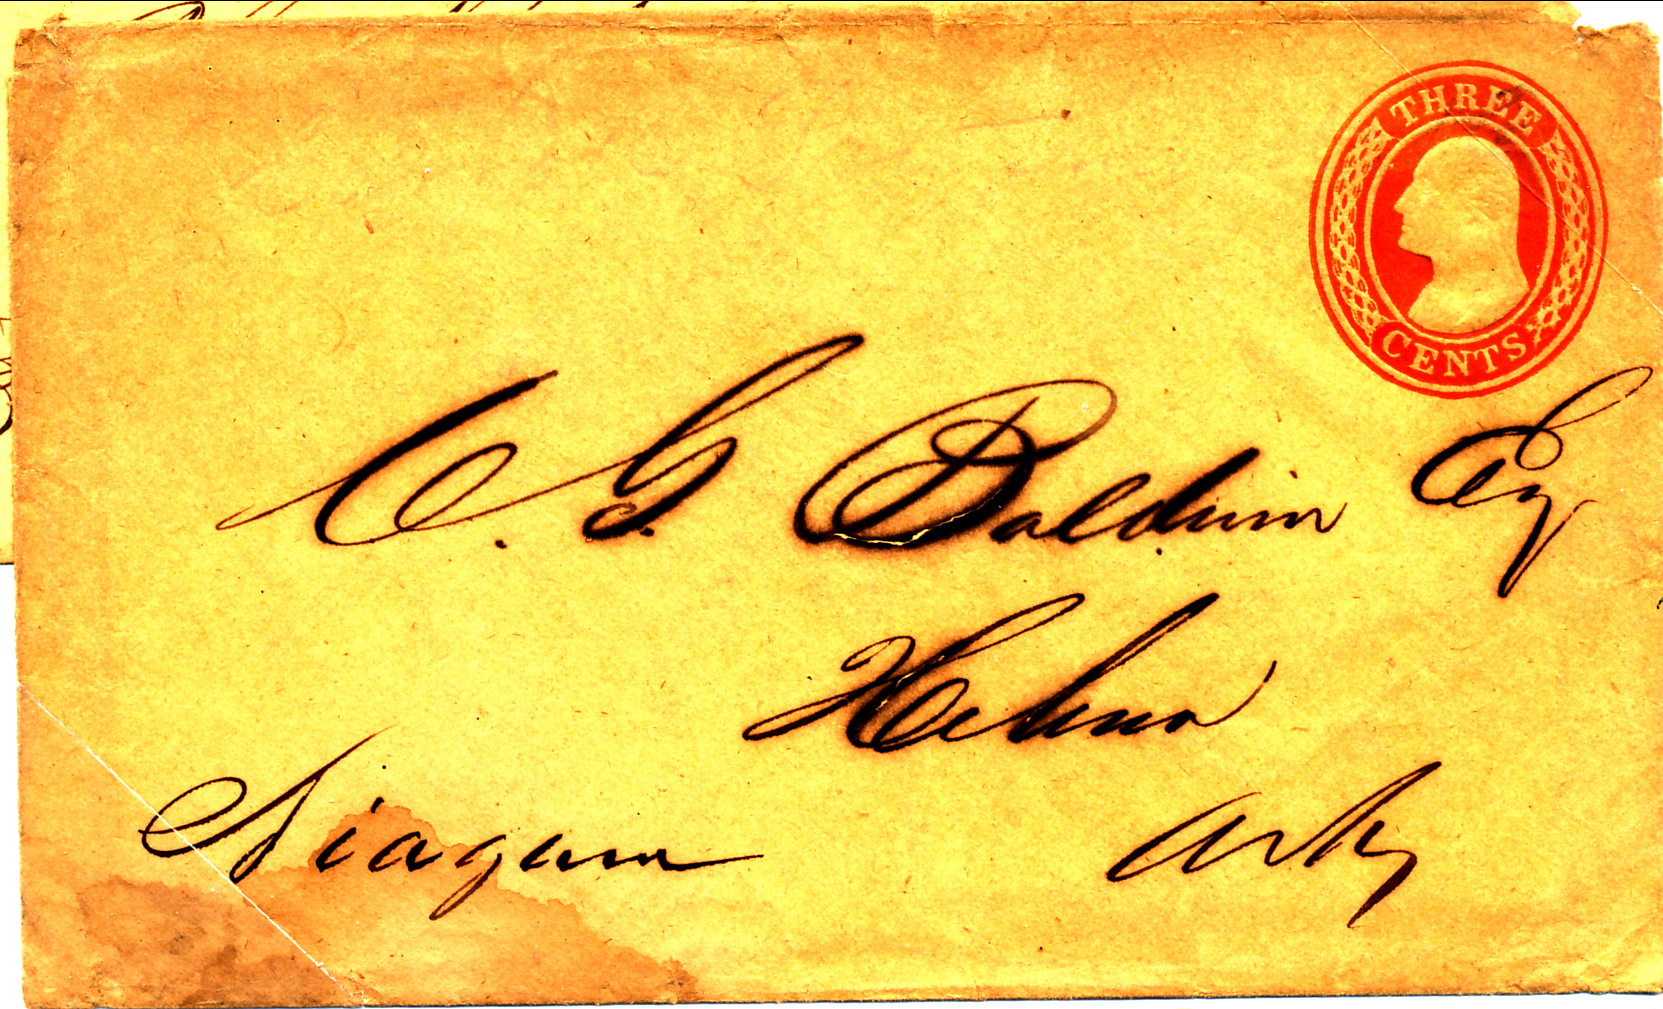 THREE
CENTS
C. G. Baldwin Esq
Helena
Niagara
Arks